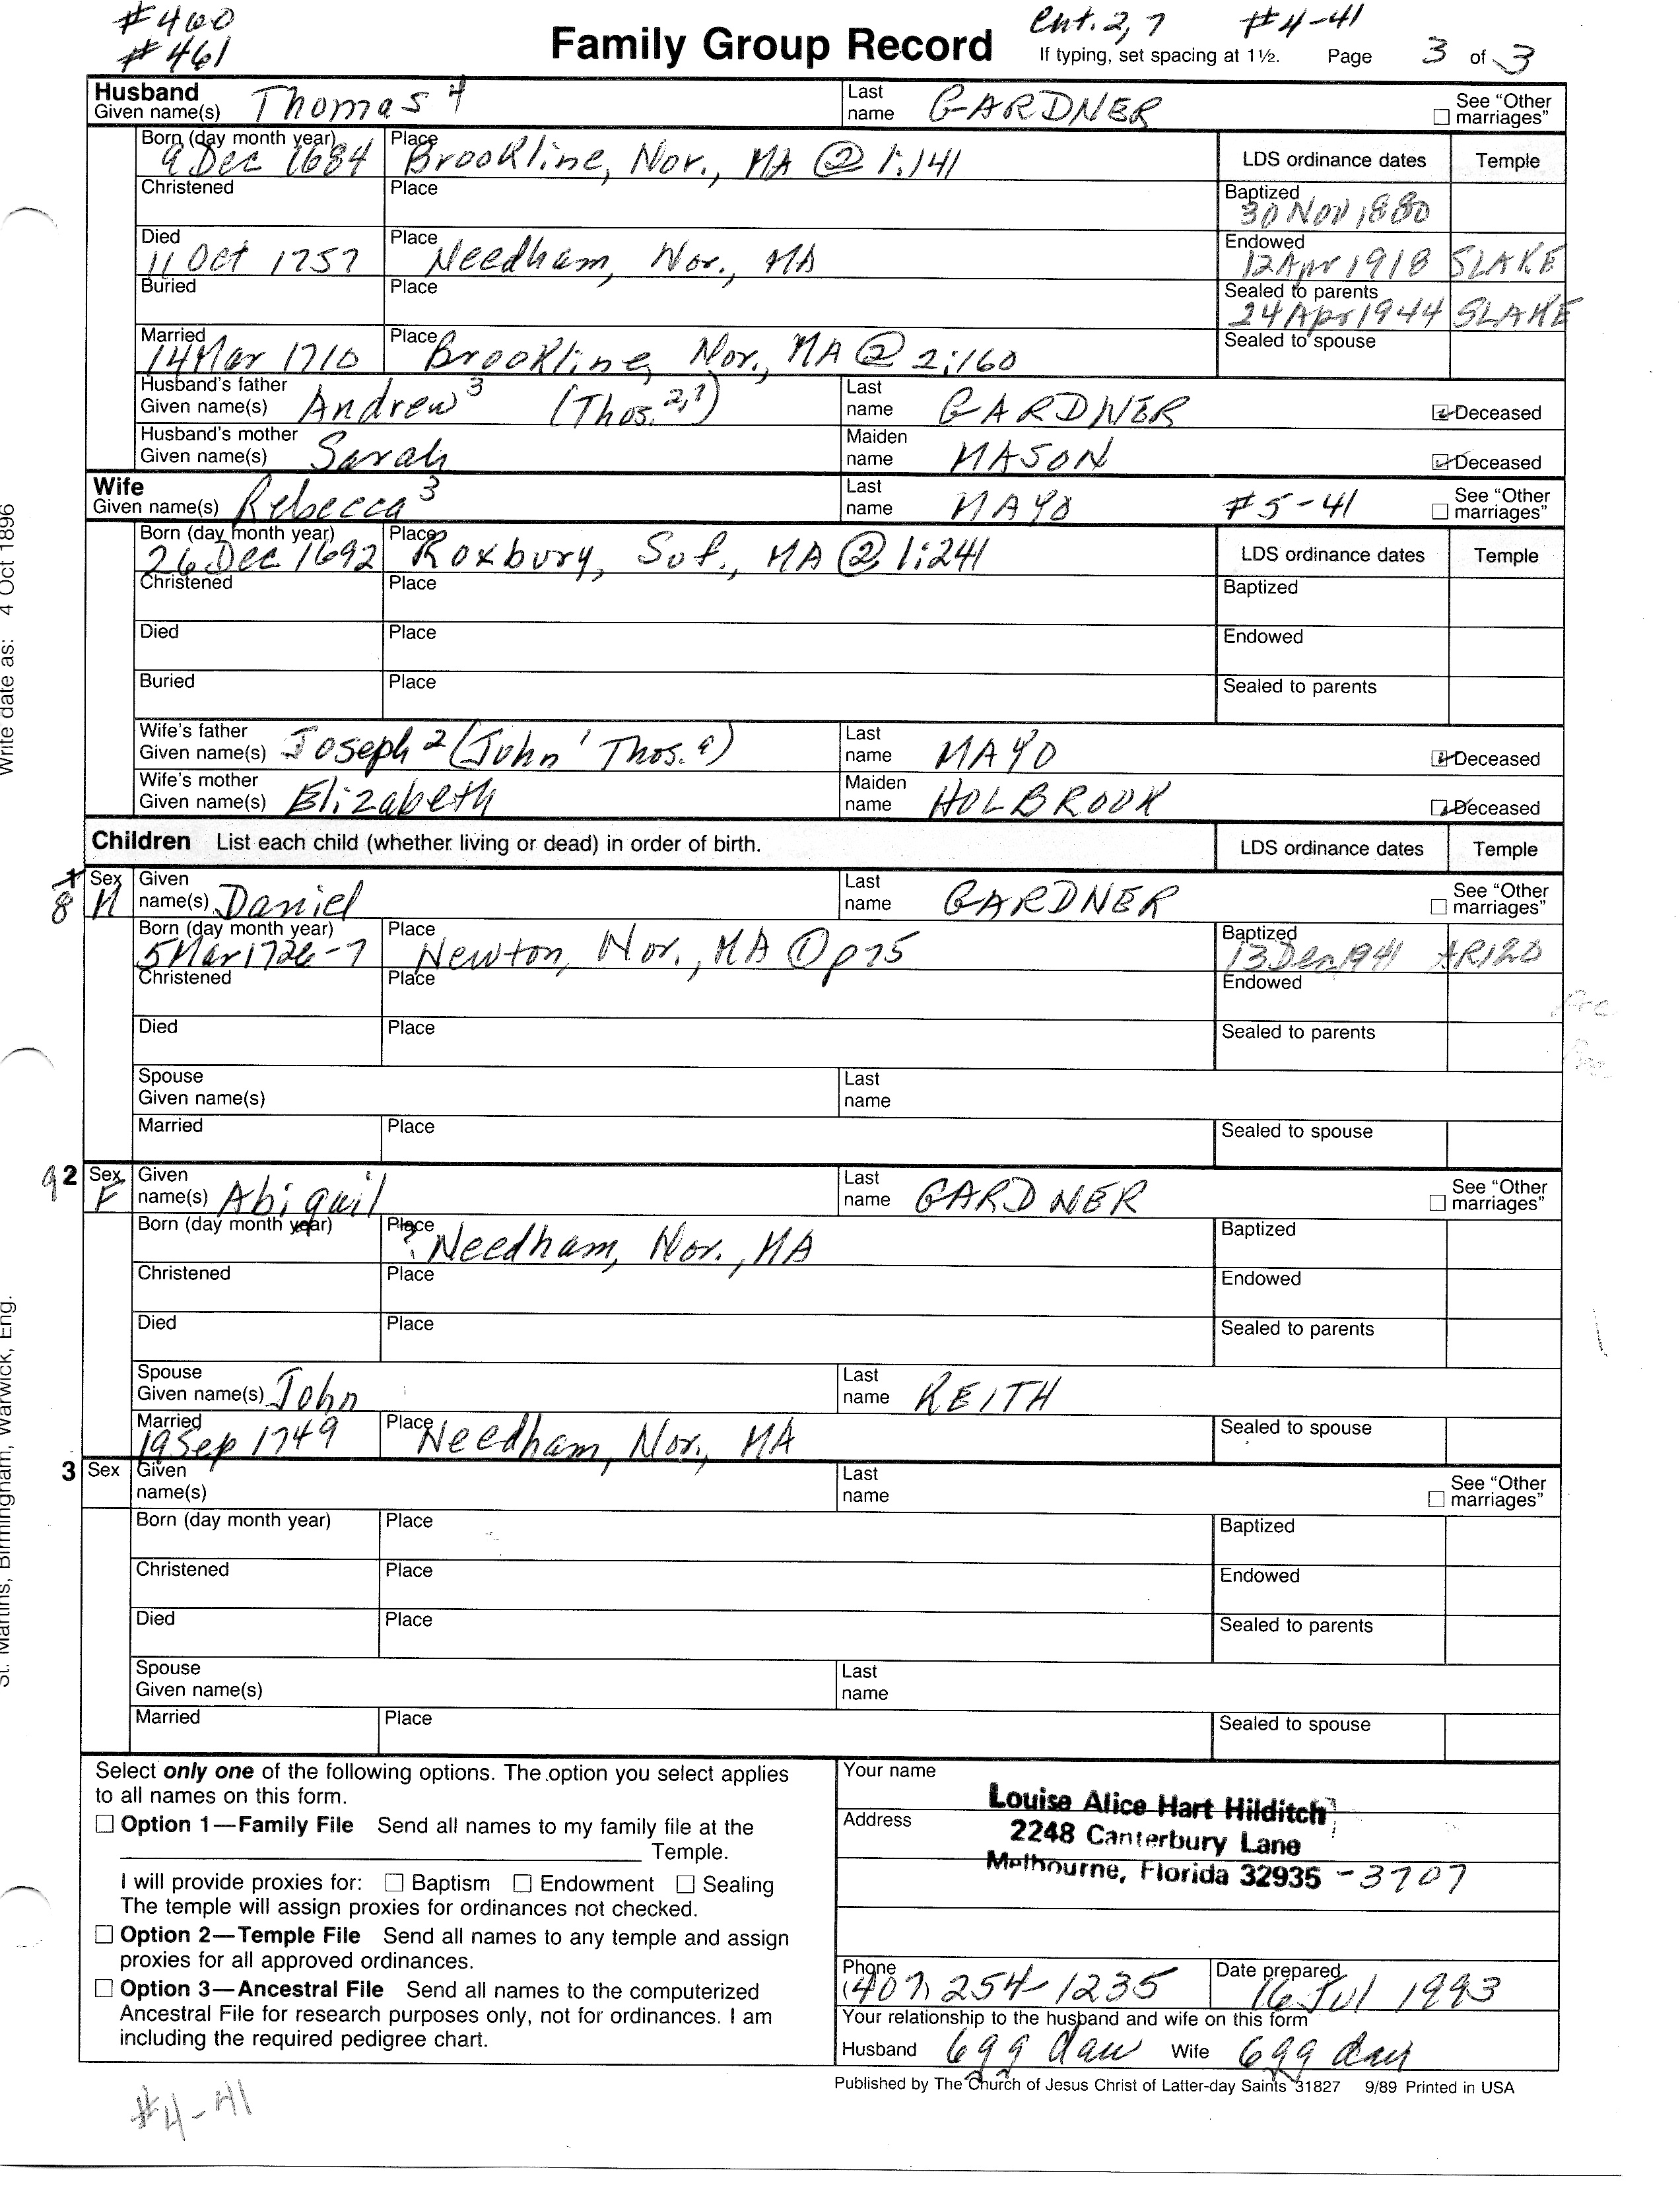 #460 Ent. 2, 7 #4-41
#461 Family Group Record If typing, set spacing at 1½. Page 3 of 3
Husband
Given name(s) Thomas 4 Last name GARDNER See “Other marriages”
Born (day month year) 9 Dec 1684 Place Brookline, Nor., MA @ 1:141 LDS ordinance dates Temple
Christened Place Baptized 30 Nov 1880
Died 11 Oct 1757 Place Needham, Nor., MA Endowed 12 Apr 1918 SLAKE
Buried Place Sealed to parents 24 Apr 1944 SLAKE
Married 14 Mar 1710 Place Brookline, Nor., MA @ 2:160 Sealed to spouse
Husband's father Given name(s) Andrew 3 (Thos. 2,1) Last name GARDNER Deceased
Husband's mother Given name(s) Sarah Maiden name MASON Deceased
Wife
Given name(s) Rebecca 3 Last name MAYO #5-41 See “Other marriages”
Born (day month year) 26 Dec 1692 Place Roxbury, Suf., MA @ 1:241 LDS ordinance dates Temple
Christened Place Baptized
Died Place Endowed
Buried Place Sealed to parents
Wife's father Given name(s) Joseph 2 (John 1 Thos. a) Last name MAYO Deceased
Wife's mother Given name(s) Elizabeth Maiden name HOLBROOK Deceased
Children List each child (whether living or dead) in order of birth. LDS ordinance dates Temple
8 Sex M Given name(s) Daniel Last name GARDNER See “Other marriages”
Born (day month year) 5 Mar 1726-7 Place Newton, Nor., MA ① p75 Baptized 13 Dec 1941 ARIZO
Christened Place Endowed
Died Place Sealed to parents
Spouse Given name(s) Last name
Married Place Sealed to spouse
9 2 Sex F Given name(s) Abigail Last name GARDNER See “Other marriages”
Born (day month year) Place ? Needham, Nor., MA Baptized
Christened Place Endowed
Died Place Sealed to parents
Spouse Given name(s) John Last name KEITH
Married 19 Sep 1749 Place Needham, Nor., MA Sealed to spouse
3 Sex Given name(s) Last name See “Other marriages”
Born (day month year) Place Baptized
Christened Place Endowed
Died Place Sealed to parents
Spouse Given name(s) Last name
Married Place Sealed to spouse
Select only one of the following options. The option you select applies
to all names on this form.
Option 1—Family File Send all names to my family file at the
Temple.
I will provide proxies for: Baptism Endowment Sealing
The temple will assign proxies for ordinances not checked.
Option 2—Temple File Send all names to any temple and assign
proxies for all approved ordinances.
Option 3—Ancestral File Send all names to the computerized
Ancestral File for research purposes only, not for ordinances. I am
including the required pedigree chart.
Your name
Louise Alice Hart Hilditch
Address
2248 Canterbury Lane
Melbourne, Florida 32935 -3707
Phone (407) 254-1235 Date prepared 16 Jul 1993
Your relationship to the husband and wife on this form
Husband 6gg dau Wife 6gg dau
Published by The Church of Jesus Christ of Latter-day Saints 31827 9/89 Printed in USA
#4-41
Write date as: 4 Oct 1896
St. Martins, Birmingham, Warwick, Eng.